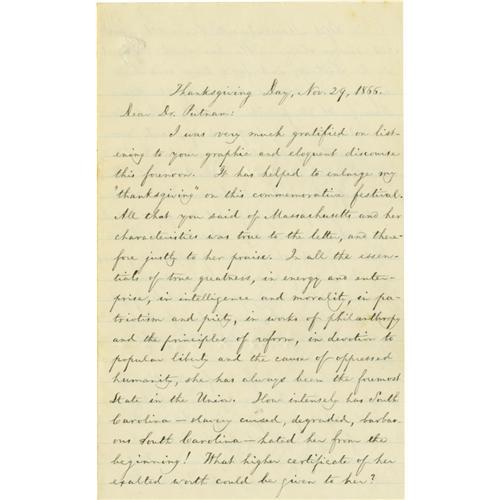 Thanksgiving Day, Nov. 29, 1866.
Dear Dr. Putnam:
I was very much gratified on list-
ening to your graphic and eloquent discourse
this forenoon. It has helped to enlarge my
"thanksgiving" on this commemorative festival.
All that you said of Massachusetts and her
characteristics was true to the letter, and there-
fore justly to her praise. In all the essen-
tials of true greatness, in energy and enter-
prise, in intelligence and morality, in pa-
triotism and piety, in works of philanthropy
and the principles of reform, in devotion to
popular liberty and the cause of oppressed
humanity, she has always been the foremost
State in the Union. How intensely has South
Carolina — slavery cursed, degraded, barbar-
ous South Carolina — hated her from the
beginning! What higher certificate of her
exalted worth could be given to her?